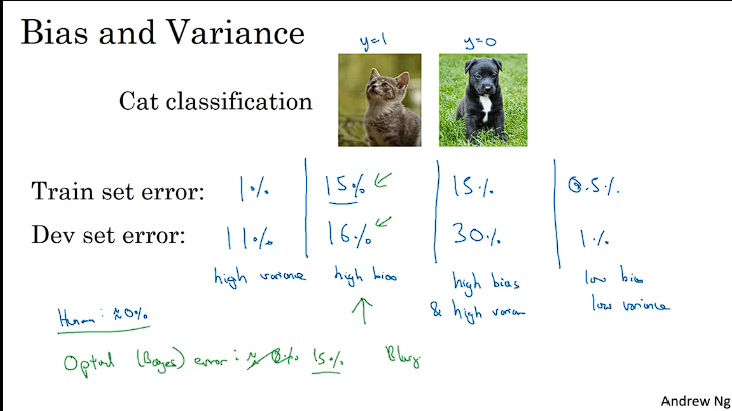 Bias and Variance
y=1 y=0
Cat classification
Train set error: 1% 15% 15% 0.5%
Dev set error: 11% 16% 30% 1%
high variance high bias high bias low bias
& high varian low variance
Human: ≈0%
Optul (Bayes) error: ≈ 0% 15% Blury
Andrew Ng